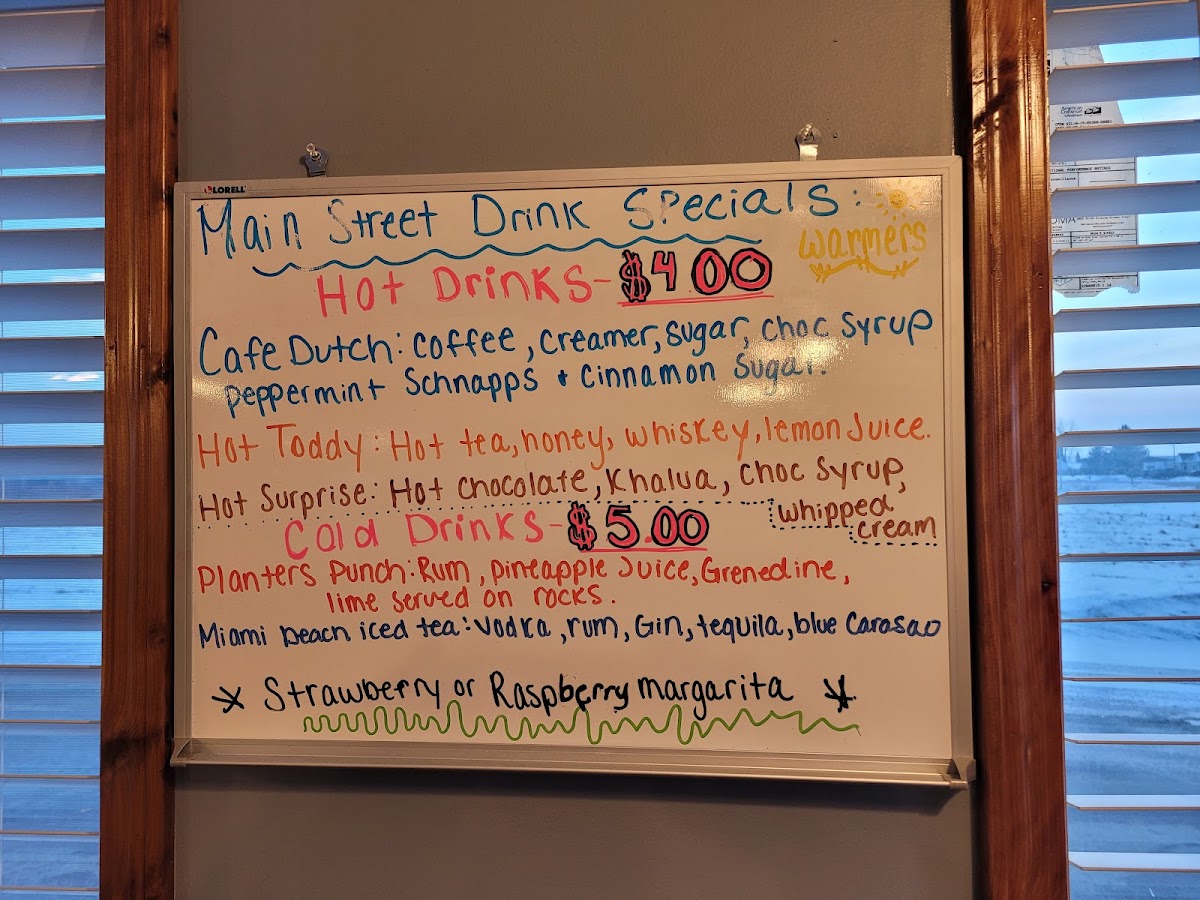 LORELL
Main Street Drink Specials:
warmers
Hot Drinks- $4.00
Cafe Dutch: coffee, creamer, sugar, choc syrup
peppermint Schnapps + cinnamon sugar.
Hot Toddy: Hot tea, honey, whiskey, lemon Juice.
Hot Surprise: Hot chocolate, Khalua, choc syrup,
whipped
cream
Cold Drinks- $5.00
Planters Punch: Rum, pineapple Juice, Grenedine,
lime served on rocks.
Miami beach iced tea: vodka, rum, Gin, tequila, blue Carasao
Strawberry or Raspberry margarita